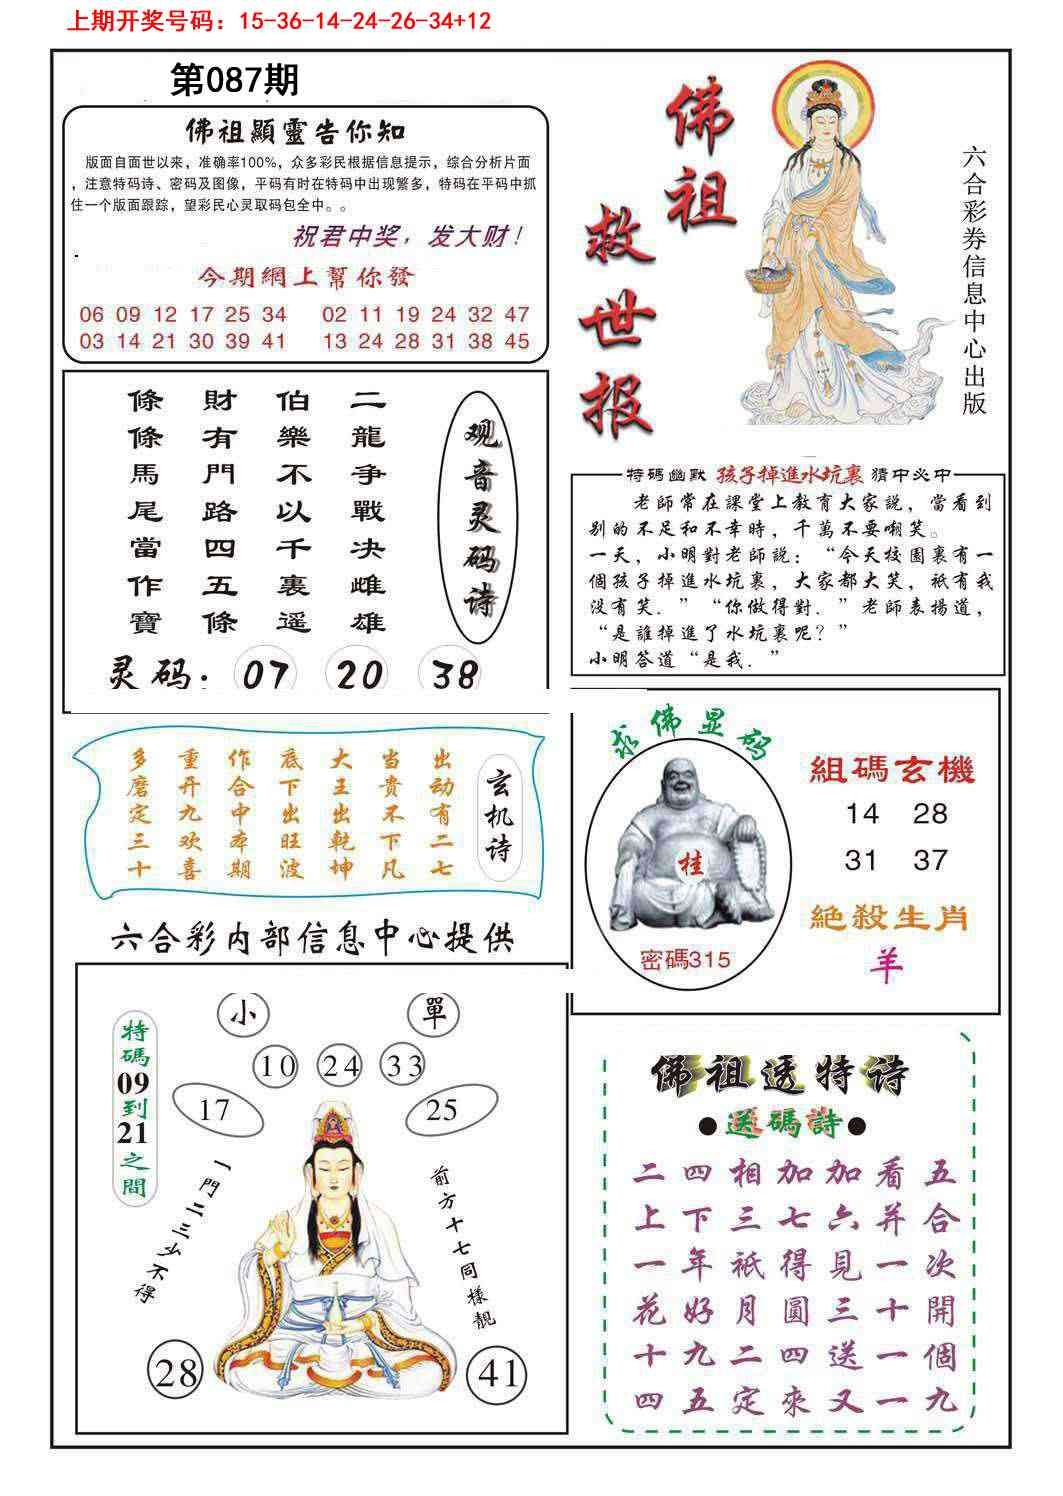 上期开奖号码：15-36-14-24-26-34+12
第087期
佛祖顯靈告你知
版面自面世以来，准确率100%，众多彩民根据信息提示，综合分析片面
，注意特码诗、密码及图像，平码有时在特码中出现繁多，特码在平码中抓
住一个版面跟踪，望彩民心灵取码包全中。。
祝君中奖，发大财！
今期網上幫你發
06 09 12 17 25 34 02 11 19 24 32 47
03 14 21 30 39 41 13 24 28 31 38 45
佛祖
救世报
六合彩券信息中心出版
观音灵码诗
二龍争戰决雌雄
伯樂不以千裏遥
財有門路四五條
條條馬尾當作寶
灵码：07 20 38
特碼幽默 孩子掉進水坑裏 猜中必中
老師常在課堂上教育大家説，當看到
别的不足和不幸時，千萬不要嘲笑。
一天，小明對老師説：“今天校園裏有一
個孩子掉進水坑裏，大家都大笑，衹有我
没有笑．”“你做得對．”老師表揚道，
“是誰掉進了水坑裏呢？”
小明答道“是我．”
玄机诗
出动有二七
当贵不下凡
大王出乾坤
底下出旺波
作合中本期
重开九欢喜
多磨定三十
求佛显码
桂
密碼315
組碼玄機
14 28
31 37
絕殺生肖
羊
六合彩内部信息中心提供
小 單
10 24 33
17 25
特碼09到21之間
一門二三少不得
前方十七同樣靚
28 41
佛祖透特诗
●送碼詩●
二四相加加看五
上下三七六并合
一年衹得見一次
花好月圓三十開
十九二四送一個
四五定來又一九